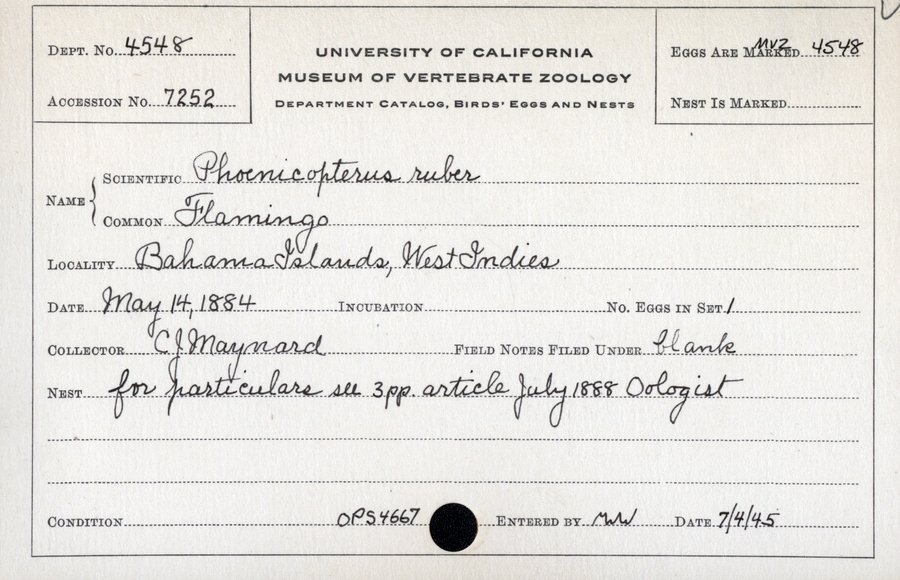 DEPT. No. 4548
ACCESSION No. 7252
UNIVERSITY OF CALIFORNIA
MUSEUM OF VERTEBRATE ZOOLOGY
DEPARTMENT CATALOG, BIRDS' EGGS AND NESTS
EGGS ARE MARKED MVZ 4548
NEST IS MARKED
NAME
SCIENTIFIC Phoenicopterus ruber
COMMON Flamingo
LOCALITY Bahama Islands, West Indies
DATE May 14, 1884 INCUBATION NO. EGGS IN SET 1
COLLECTOR CJ Maynard FIELD NOTES FILED UNDER blank
NEST for particulars see 3pp. article July 1888 Oologist
CONDITION OPS4667 ENTERED BY DATE 7/4/45